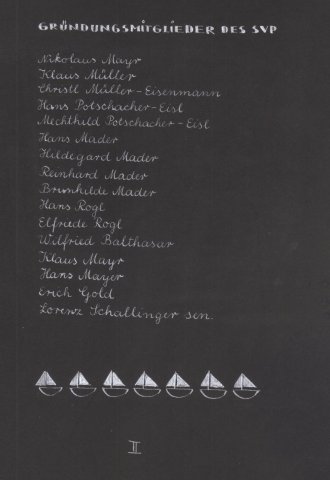 GRÜNDUNGSMITGLIEDER DES SVP
Nikolaus Mayr
Klaus Müller
Christl Müller-Eisenmann
Hans Potschacher-Eisl
Mechthild Potschacher-Eisl
Hans Mader
Hildegard Mader
Reinhard Mader
Brunhilde Mader
Hans Rogl
Elfriede Rogl
Wilfried Balthasar
Klaus Mayr
Hans Mayer
Erich Gold
Lorenz Schallinger sen.
II